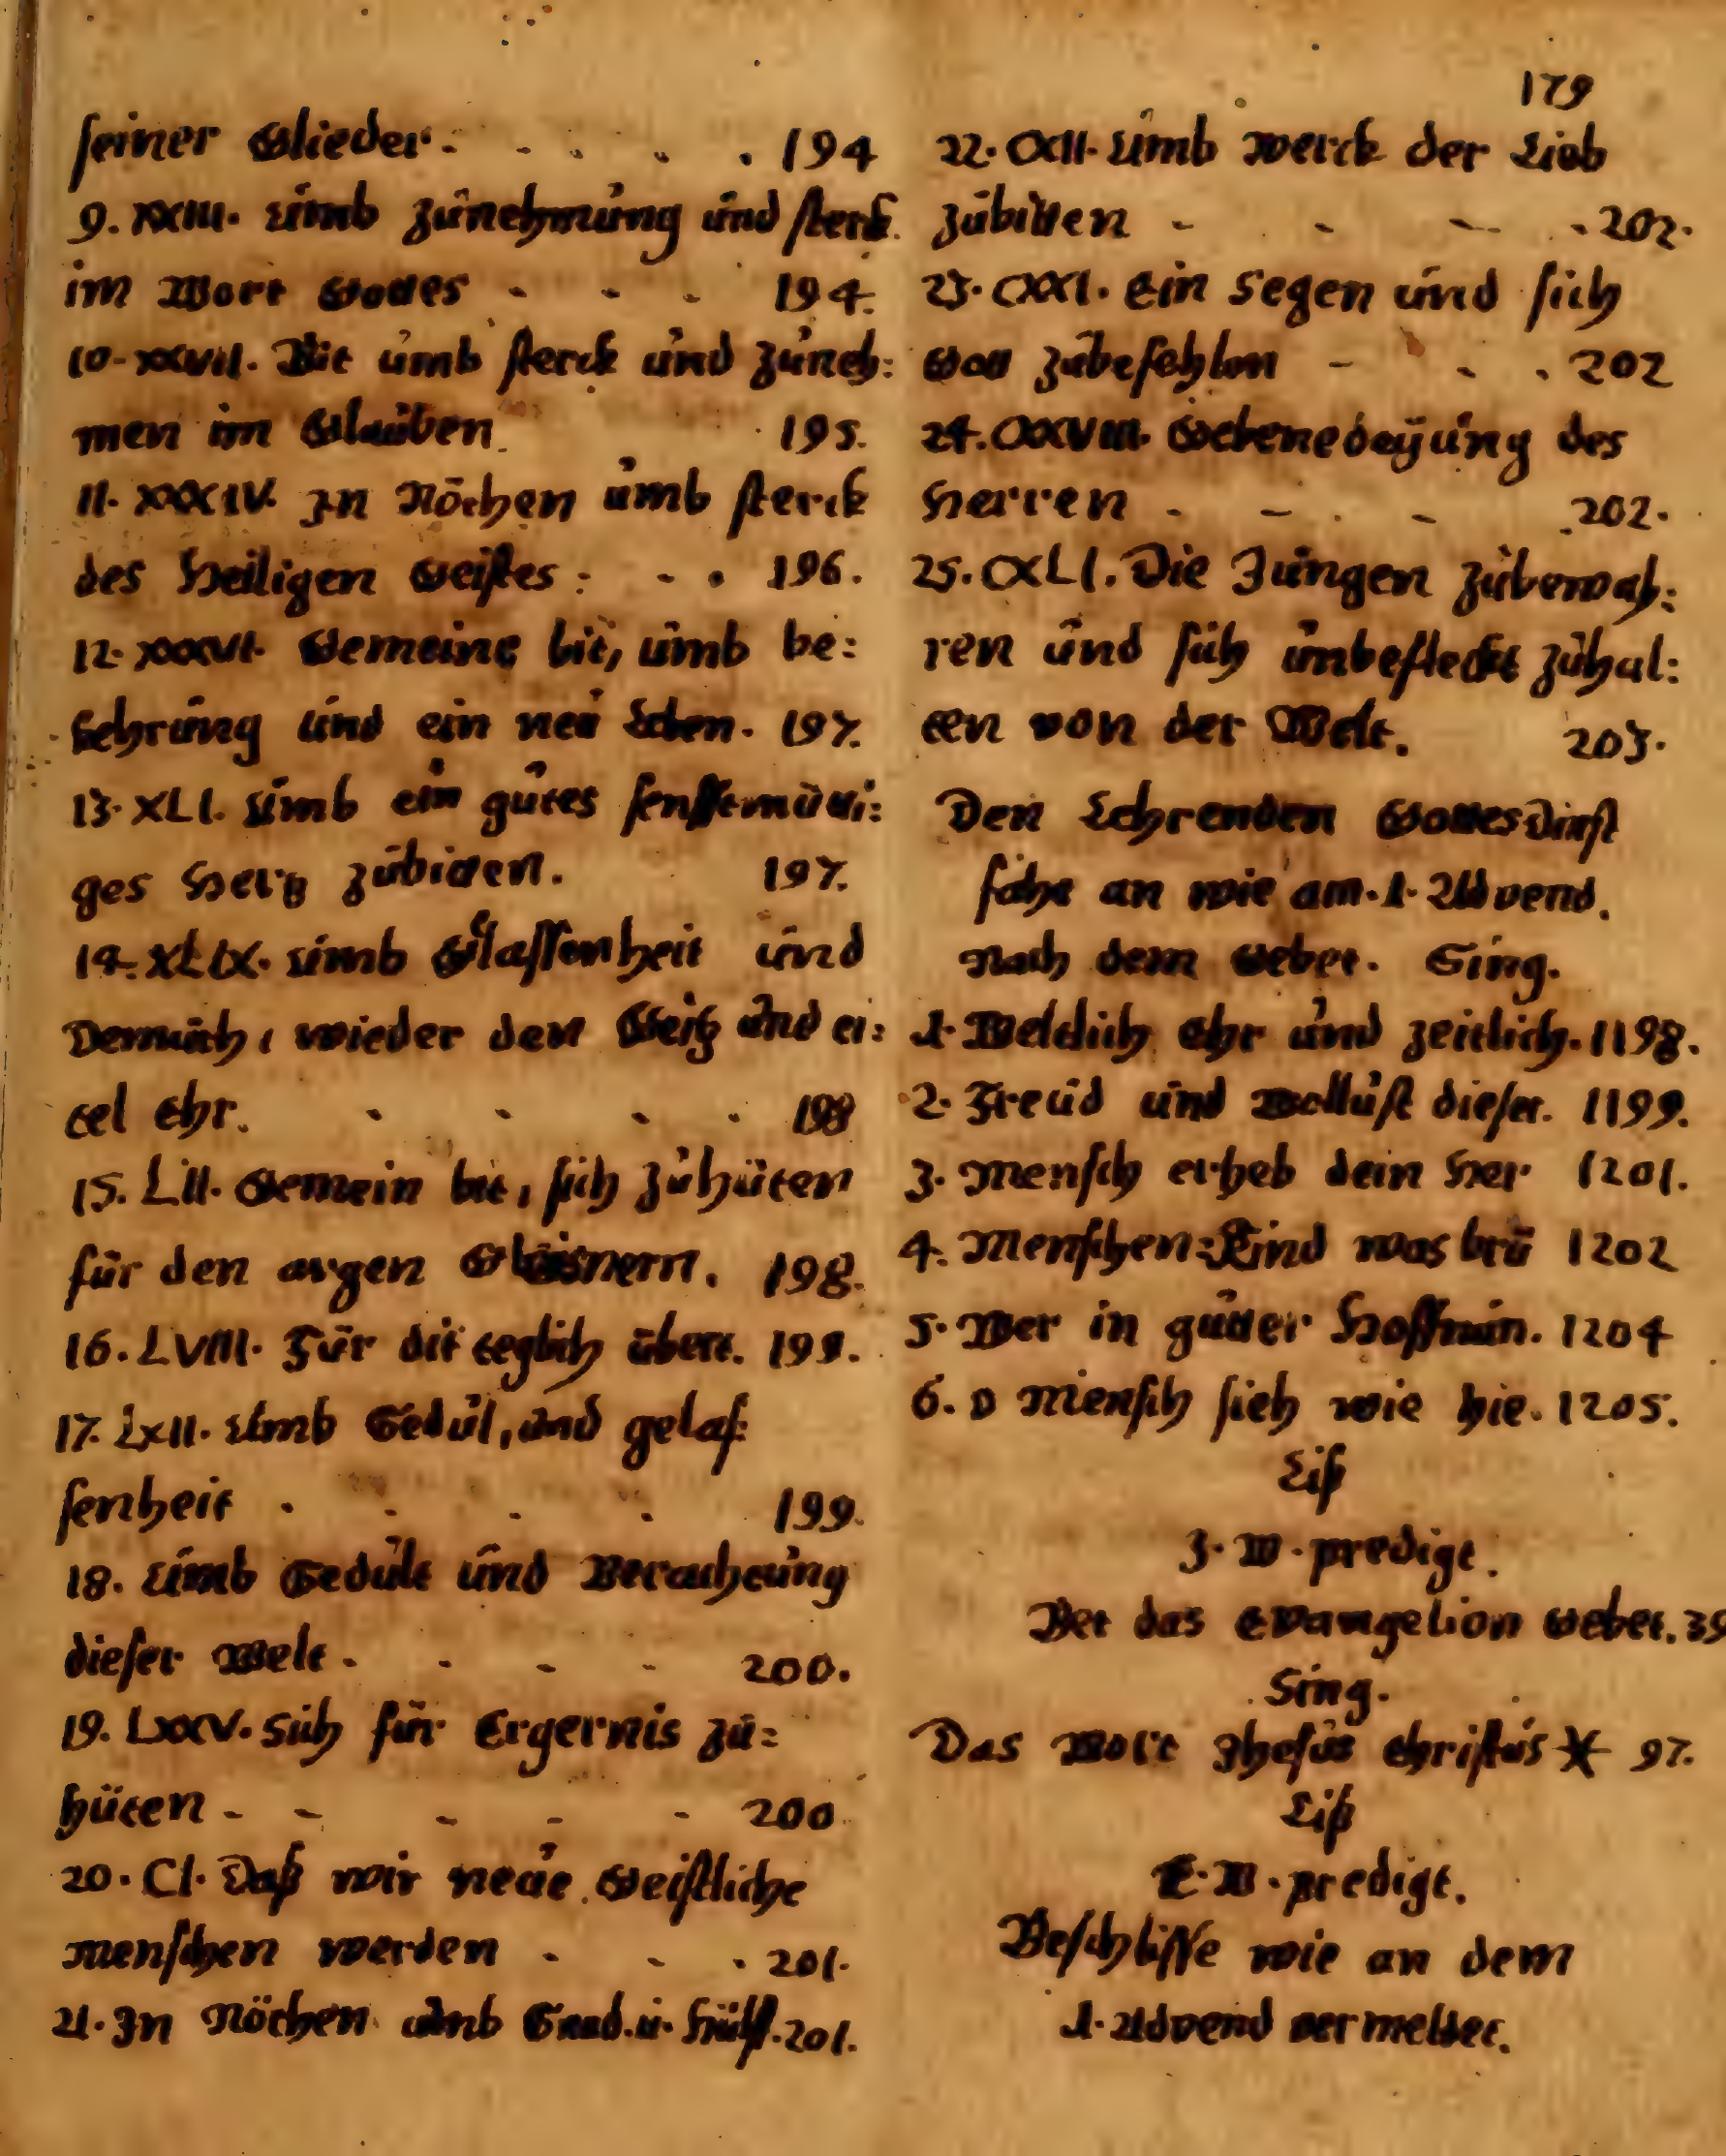 179
seiner Glieder. - . . . 194
9. XXIII. Umb zunehmung und sterk.
im Wort Gottes - - . 194.
10. XXVII. Bit umb sterck und zuneh:
men im Glauben. 195.
11. XXXIV. In Nöthen umb sterck
des Heiligen Geistes: - . 196.
12. XXXVI. Gemeine bit, umb be:
kehrung und ein neu Leben. 197.
13. XLI. Umb ein gutes senfftmüti:
ges Hertz zubitten. 197.
14. XLIX. Umb Glassenheit und
Demuth, wieder den Geitz und ei:
tel Ehr. . . . . 198
15. LII. Gemein bit, sich zuhüten
für den argen Gleisnern. 198.
16. LVIII. Für dit teglich übert. 199.
17. LXII. Umb Gedul, und gelas:
senheit . . . . 199.
18. Umb Gedult und Verachtung
dieser Welt. - - - 200.
19. LXXV. Sich für Ergernis zu:
hüten - - - - - 200
20. CI. Daß wir neue Geistliche
menschen werden - - . 201.
21. In Nöthen umb Gnad. u. Hülff. 201.
22. CXII. Umb werck der Lieb
zubitten - . - . 202.
23. CXXI. Ein Segen und sich
Gott zubefehlen - . . 202
24. CXXVIII. Gebenedeyung des
Herren - - . - 202.
25. CXLI. Die Zungen zubewah:
ren und sich unbefleckt zuhal:
ten von der Welt. 203.
Den Lehrenden Gottesdinst
fahe an wie am. 1. Advend.
Nach dem Gebet. Sing.
1. Weldlich Ehr und zeitlich. 1198.
2. Freud und Wollust dieser. 1199.
3. Mensch erheb dein Her 1201.
4. Menschen=Kind was brü 1202
5. Wer in guter Hoffnun. 1204
6. O Mensch sieh wie hie. 1205.
Liß
3. W. predigt.
Bet das Evangelion Gebet. 39
Sing.
Das Wort Jhesus Christus X 97.
Liß
W. predigt.
Beschlisse wie an dem
1. Advend vermeldet.